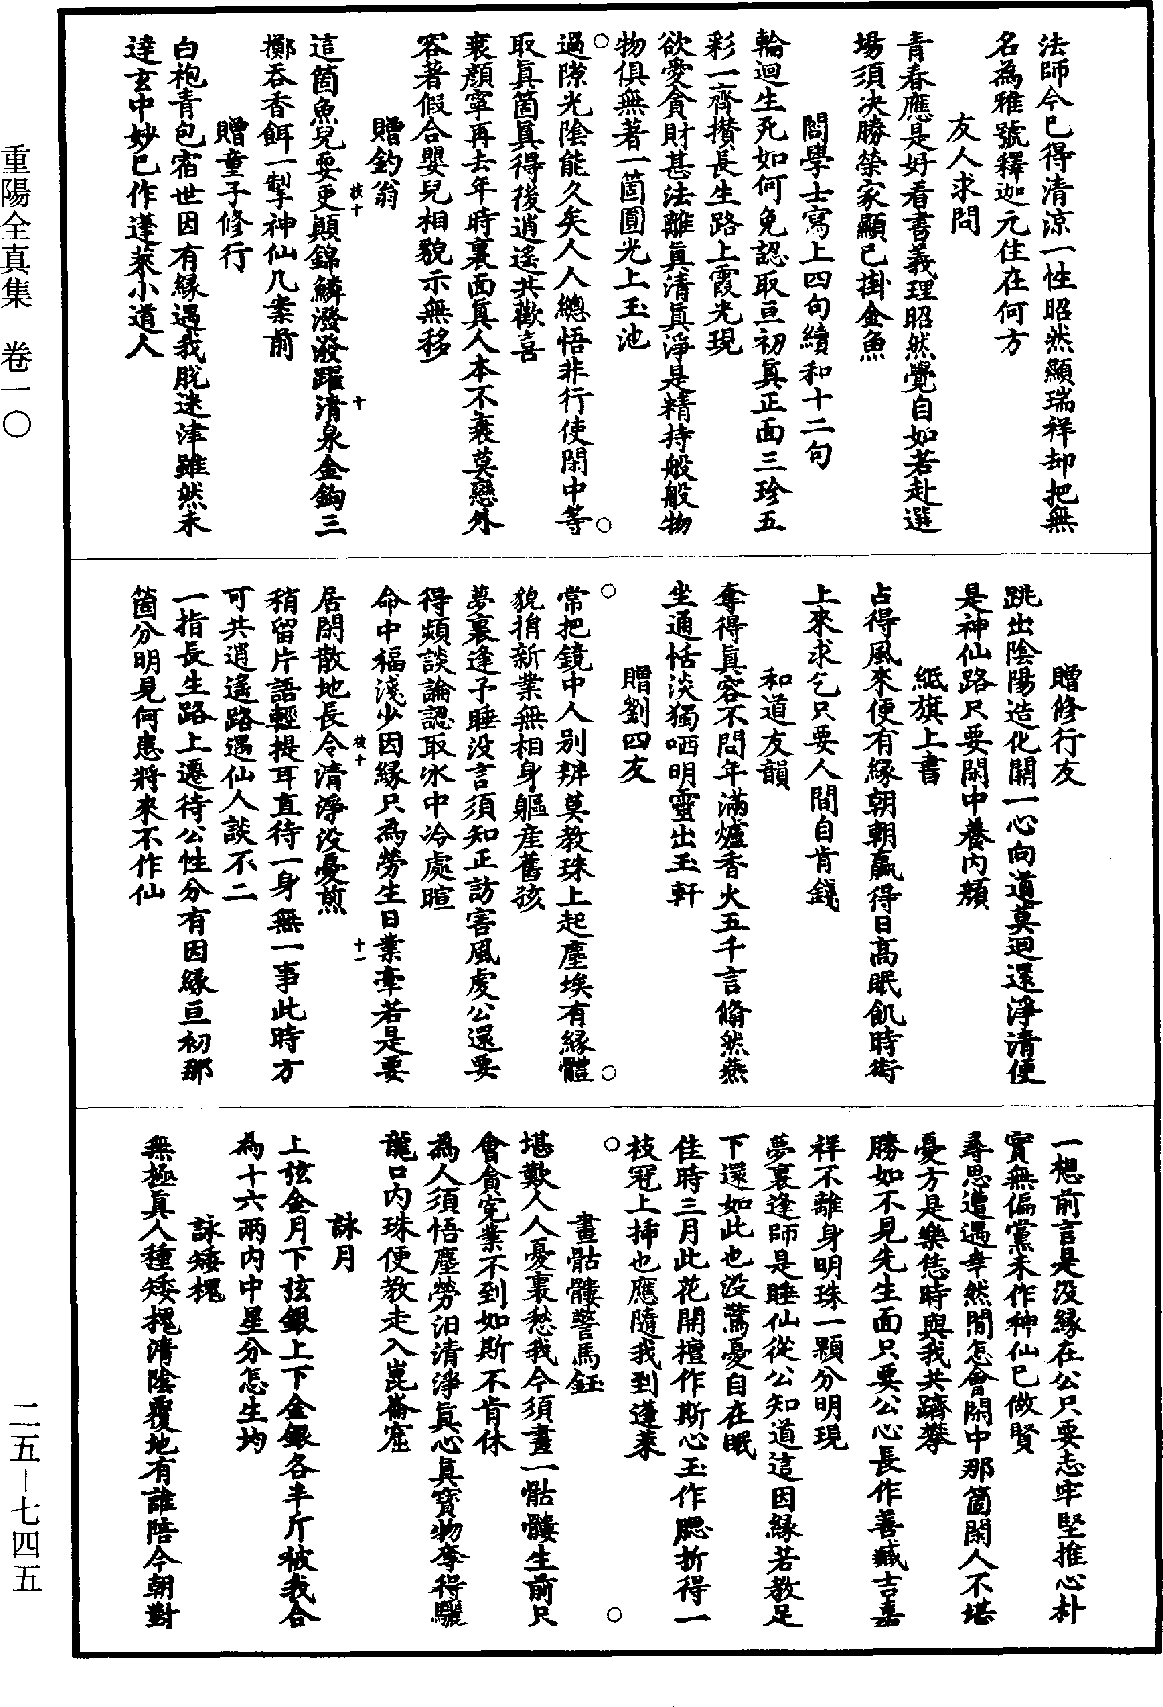 重陽全真集　卷一〇
二五—七四五
法師今已得清涼一性昭然顯瑞祥却把無
名為雅號釋迦元住在何方
友人求問
青春應是好看書義理昭然覺自如若赴選
場須決勝榮家顯已掛金魚
問學士寫上四句續和十二句
輪迴生死如何免認取亘初真正面三珍五
彩一齊攢長生路上霞光現
欲愛貪財甚法離真清真淨是精持般般物
物俱無著一箇圓光上玉池
過隙光陰能久矣人人總悟非行使閑中等
取真箇真得後逍遙共歡喜
衰顏寧再去年時裏面真人本不衰莫戀外
容著假合嬰兒相貌示無移
贈釣翁
這箇魚兒耍更顛錦鱗潑潑躍清泉金鉤三
擲吞香餌一掣神仙几案前
贈童子修行
白袍青包宿世因有緣遇我脫迷津雖然未
達玄中妙已作蓬萊小道人
枝十
十
贈修行友
跳出陰陽造化關一心向道莫迴還淨清便
是神仙路只要閑中養內顏
紙旗上書
占得風來便有緣朝朝贏得日高眠飢時街
上來求乞只要人間自肯錢
和道友韻
奪得真容不問年滿爐香火五千言翛然燕
坐通恬淡獨哂明靈出玉軒
贈劉四友
常把鏡中人別辨莫教珠上起塵埃有緣體
貌捎新業無相身軀產舊孩
夢裏逢予睡没言須知正訪害風虔公還要
得頻談論認取冰中冷處暄
命中福淺少因緣只為勞生日業牽若是要
居閑散地長令清淨没憂煎
稍留片語輕提耳直待一身無一事此時方
可共逍遙路遇仙人談不二
一指長生路上遷待公性分有因緣亘初那
箇分明見何患將來不作仙
枝十
十一
一想前言是没緣在公只要志牢堅推心朴
實無偏黨未作神仙已做賢
尋思遭遇幸然閒怎會閑中那箇閑人不堪
憂方是樂恁時與我共躋攀
勝如不見先生面只要公心長作善臧吉嘉
祥不離身明珠一顆分明現
夢裏逢師是睡仙從公知道這因緣若教足
下還如此也没驚憂自在眠
佳時三月此花開檀作斯心玉作腮折得一
枝冠上插也應隨我到蓬萊
畫骷髏警馬鈺
堪歎人人憂裏愁我今須畫一骷髏生前只
會貪冤業不到如斯不肯休
為人須悟塵勞汩清淨真心真寶物奪得驪
龍口内珠便教走入崑崙窟
詠月
上弦金月下弦銀上下金銀各半斤被我合
為十六兩内中星分怎生均
詠矮槐
無極真人種矮槐清陰覆地有誰陪今朝對